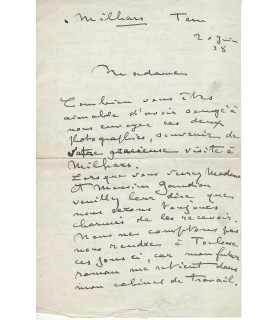 Milhars Tarn
20 Juin
28
Madame
Combien vous êtes
aimable d'avoir songé à
nous envoyer ces deux
photographies, souvenir de
votre gracieuse visite à
Milhars.
Lorsque vous verrez Madame
et Monsieur Gaudion
veuillez leur dire que
nous serons toujours
charmés de les recevoir.
Nous ne comptons pas
nous rendre à Toulouse
ces jours ci, car mon futur
roman me retient dans
mon cabinet de travail.